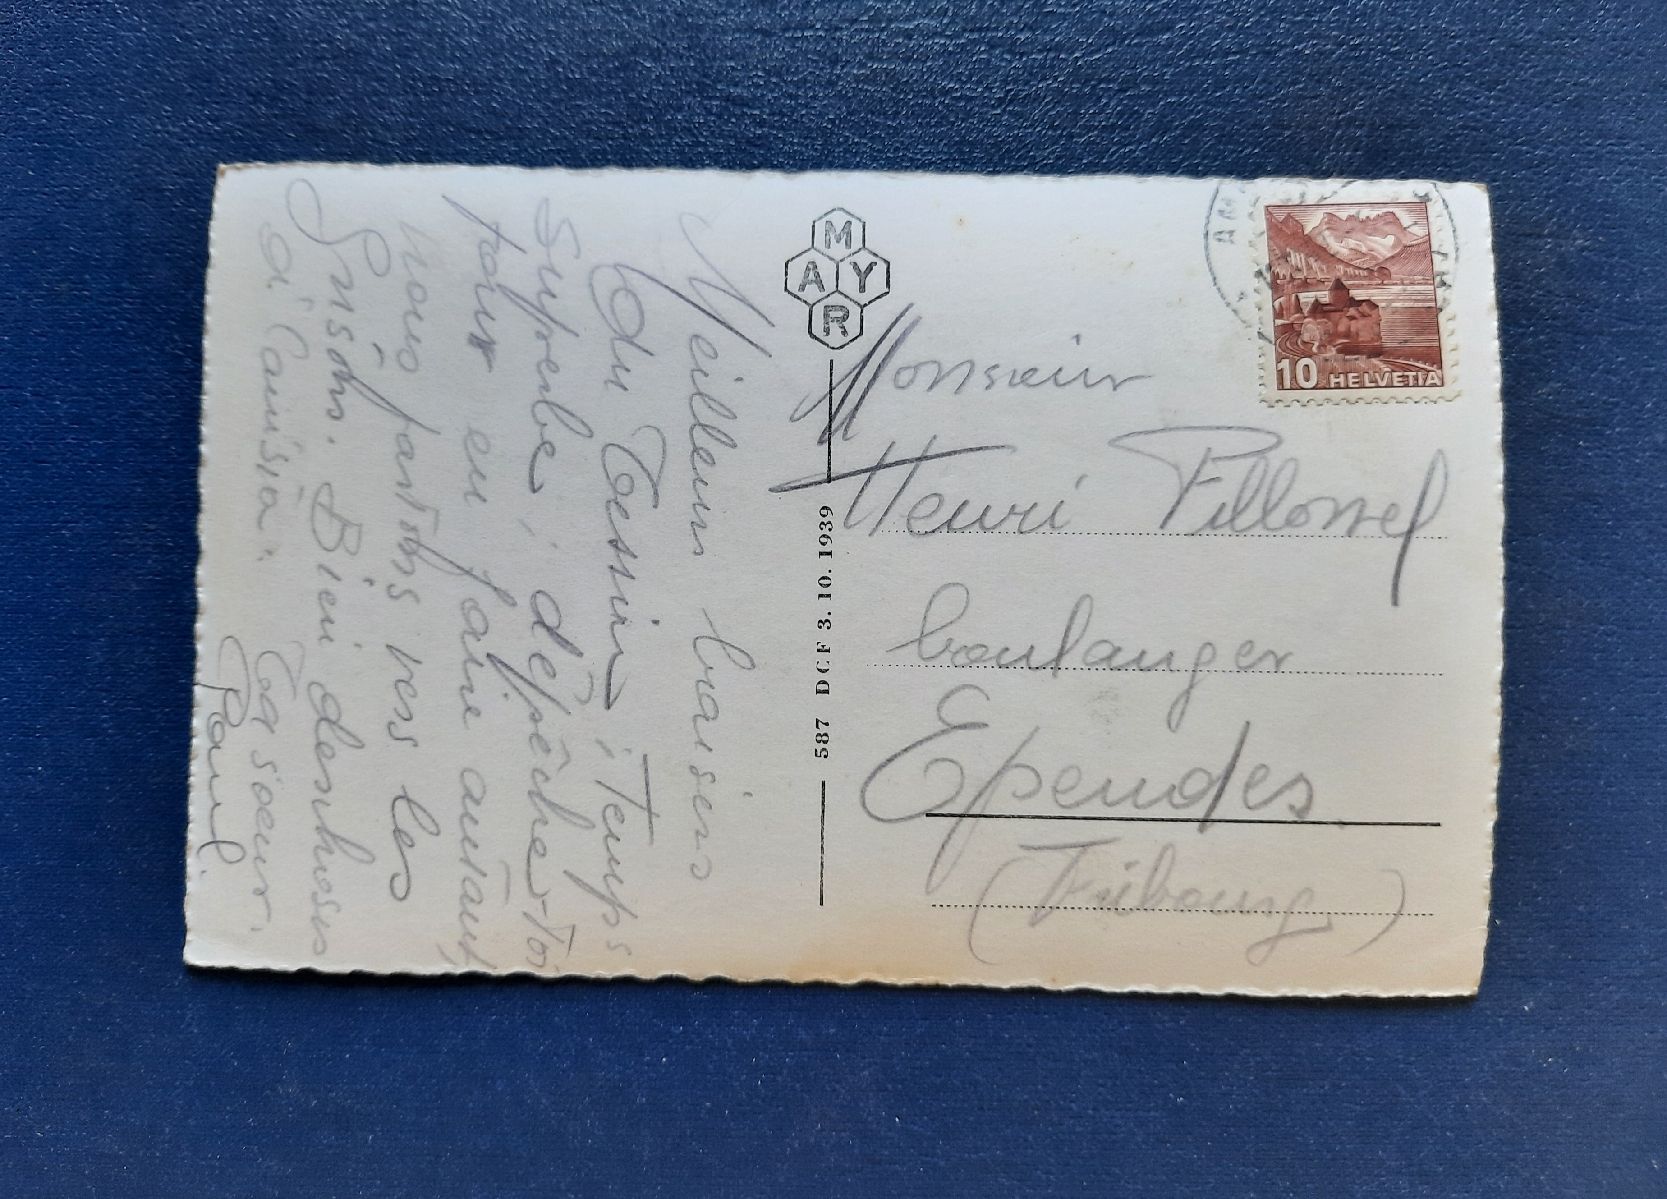 Meilleurs baisers
du Tessin, Temps
superbe, dépêche-toi
pour en faire autant,
nous partons vers les
Bien des choses
à Ta soeur.
Paul
MAYR
587 DCF 3.10.1939
Monsieur
Henri Pillonel
boulanger
Ependes.
(Fribourg)
10 HELVETIA
AM